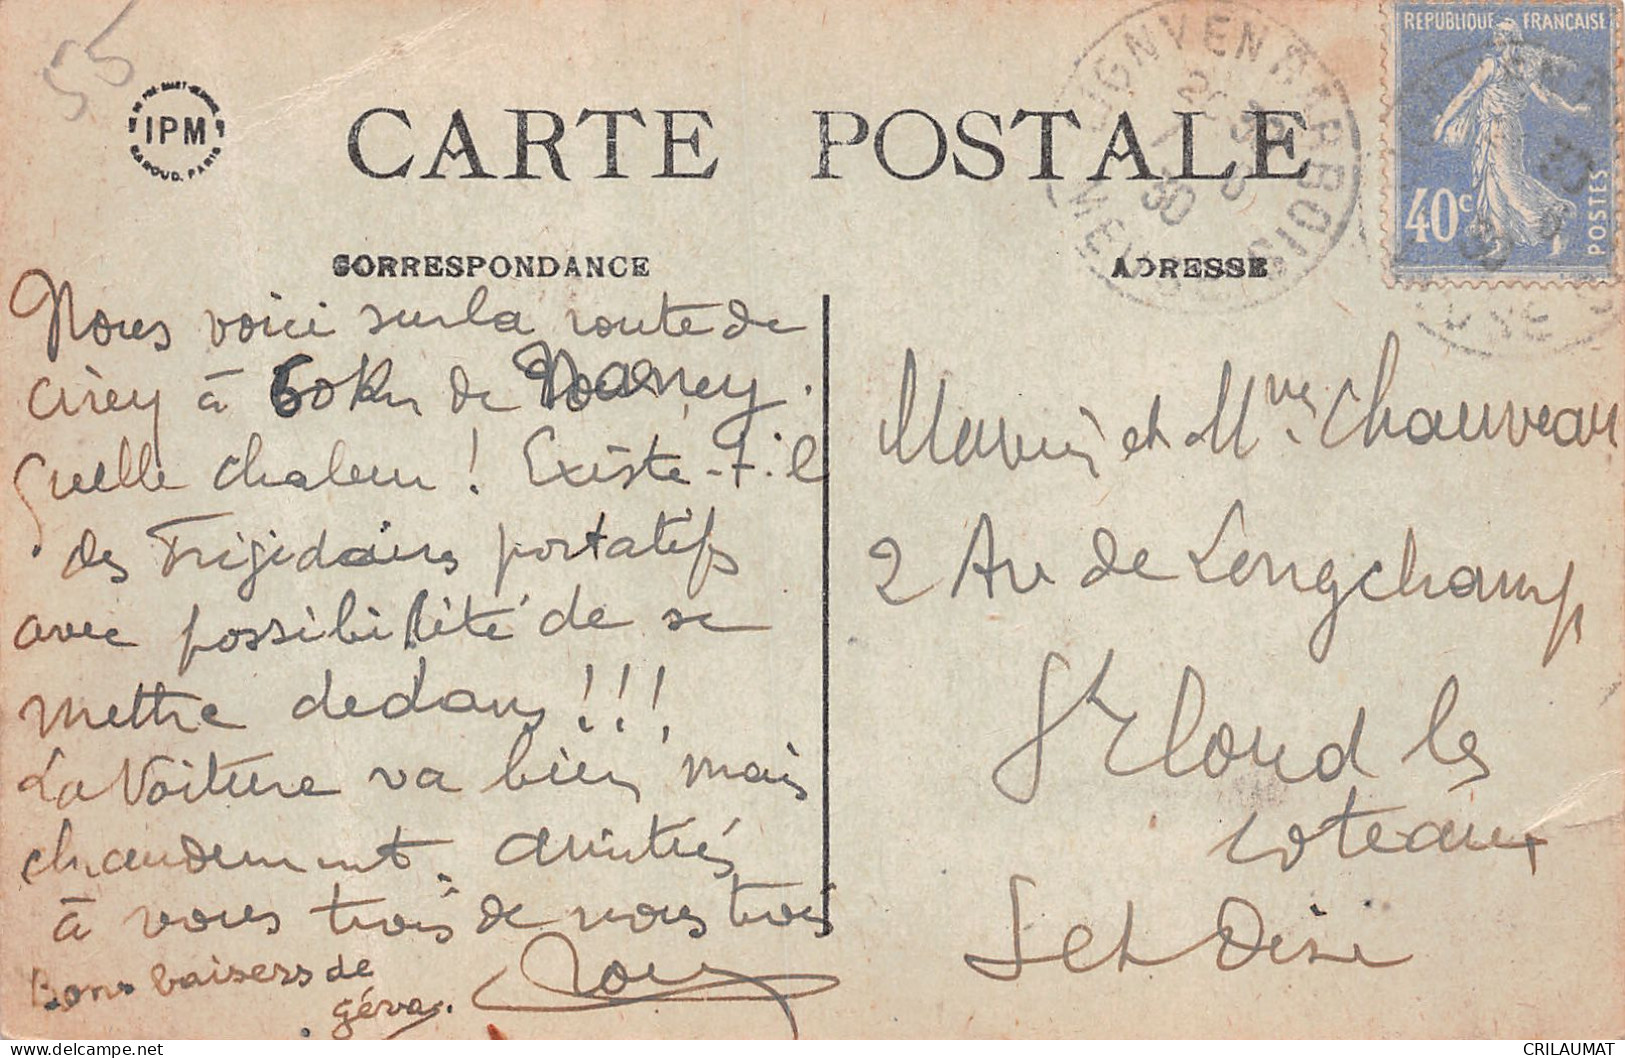 55
IPM
BAROUD. PARIS
CARTE POSTALE
REPUBLIQUE FRANÇAISE
40c
POSTES
LIGNY EN BARROIS
MEUSE
CORRESPONDANCE
ADRESSE
Nous voici sur la route de
Cirey à 60 Km de Nancey.
Quelle chaleur ! Existe-t-il
des Frigidaires portatifs
avec possibilité de se
mettre dedans !!!
La Voiture va bien mais
chaudement. Amitiés
à vous trois de nous trois
Bons baisers de
géva.
et Mme Chauveau
2 Av de Longchamp
St Cloud les
coteaux
S et Oise
CRILAUMAT